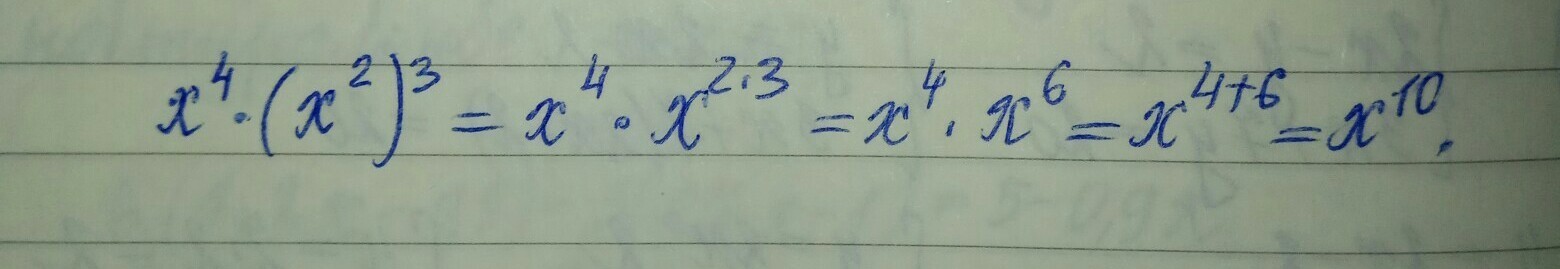 x⁴·(x²)³ = x⁴·x²·³ = x⁴·x⁶ = x⁴⁺⁶ = x¹⁰.